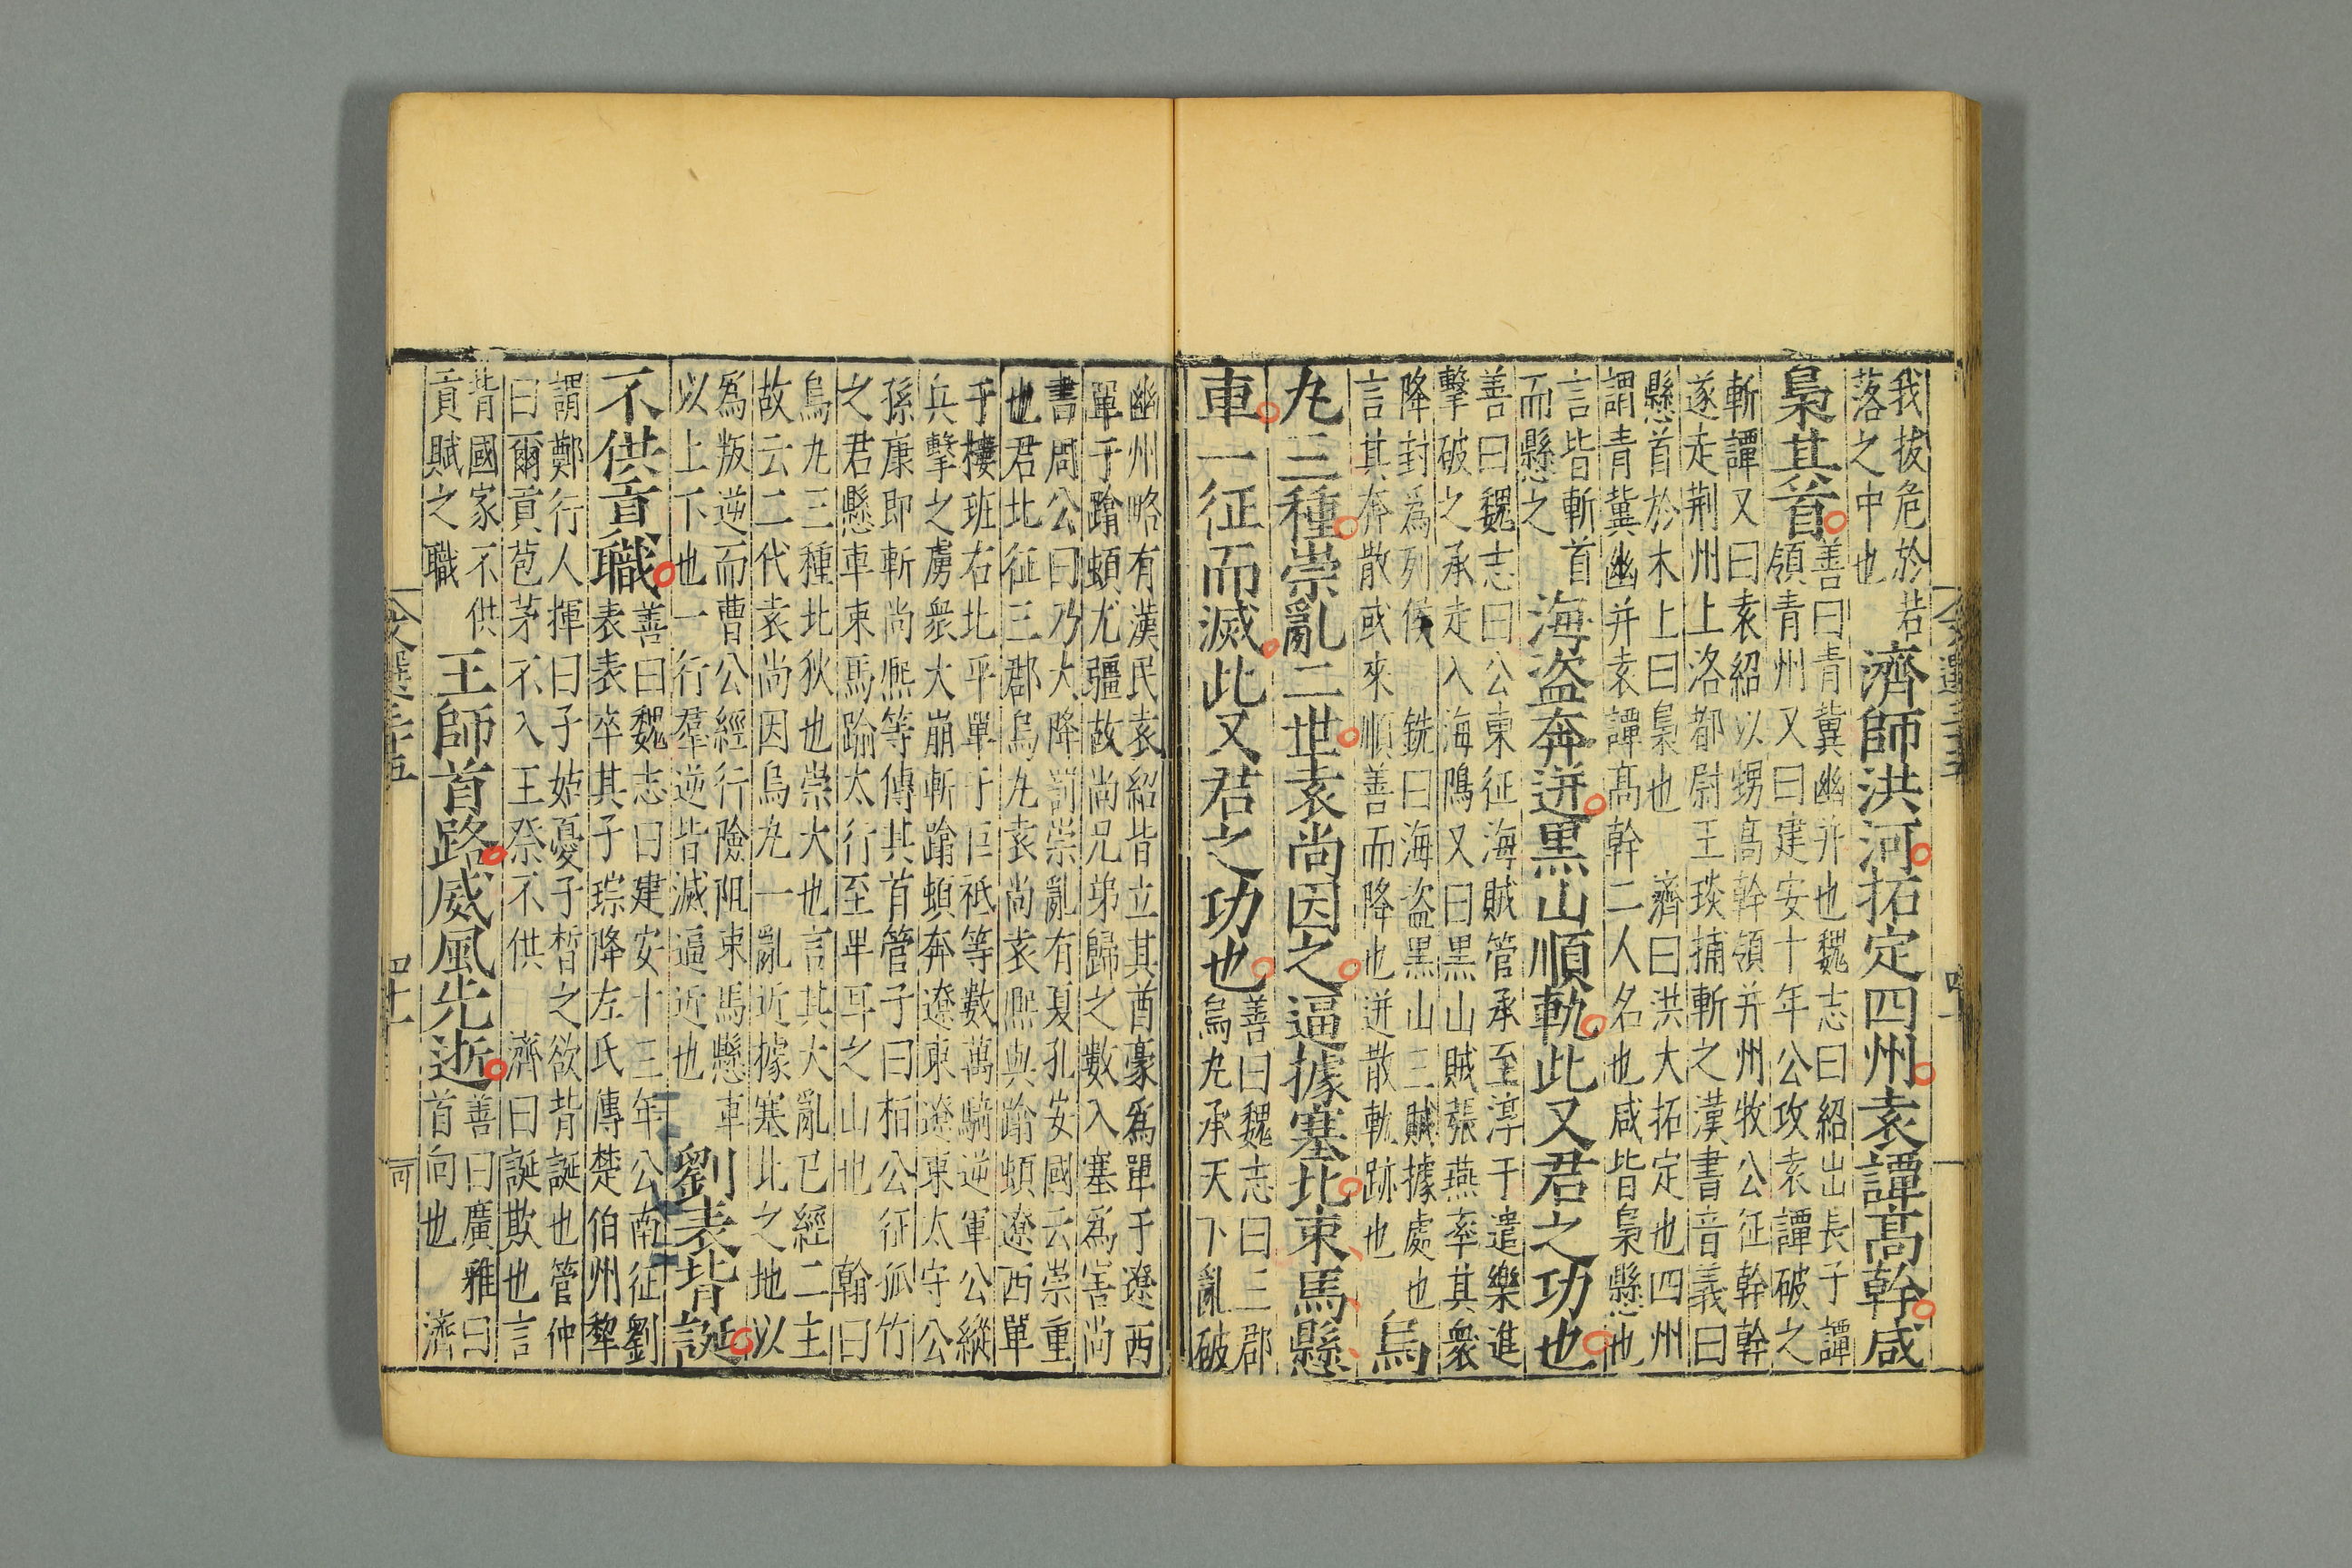 我拔危於若
落之中也
濟師洪河拓定四州袁譚髙幹咸
梟其首
善曰青冀幽并也魏志曰紹出長子譚
領青州又曰建安十年公攻袁譚破之
斬譚又曰袁紹以甥髙幹領并州牧公征幹幹
遂走荆州上洛都尉王琰捕斬之漢書音義曰
懸首於木上曰梟也 濟曰洪大拓定也四州
謂青冀幽并袁譚髙幹二人名也咸皆梟懸也
言皆斬首
而懸之
海盗奔迸黒山順軌此又君之功也
善曰魏志曰公東征海賊管承至淳于遣樂進
擊破之承走入海隝又曰黒山賊張燕率其衆
降封爲列侯 銑曰海盗黒山三賊據處也
言其奔散或來順善而降也迸散軌跡也
烏
丸三種崇亂二世袁尚因之逼據塞北束馬懸
車一征而滅此又君之功也
善曰魏志曰三郡
烏丸承天下亂破
幽州略有漢民袁紹皆立其酋豪爲單于遼西
單于蹹頓尤彊故尚兄弟歸之數入塞爲害尚
書周公曰乃大降罰崇亂有夏孔安國云崇重
也君北征三郡烏丸袁尚袁熈與蹹頓遼西單
于樓班右北平單于
等數萬騎逆軍公縱
兵擊之虜衆大崩斬蹹頓奔遼東遼東太守公
孫康即斬尚熈等傳其首管子曰桓公征孤竹
之君懸車束馬踰太行至卑耳之山也 翰曰
烏丸三種北狄也崇大也言其大亂已經二主
故云二代袁尚因烏丸一亂近據塞北之地以
爲叛逆而曹公經行險阻束馬懸車
以上下也一行羣逆皆滅逼近也
劉表背誕
不供貢職
善曰魏志曰建安十三年公南征劉
表表卒其子琮降左氏傳楚伯州犂
謂鄭行人揮曰子姑憂子皙之欲背誕也管仲
曰爾貢苞茅不入王祭不供 濟曰誕欺也言
背國家不供
貢賦之職
王師首路威風先逝
善曰廣雅曰
首向也 濟